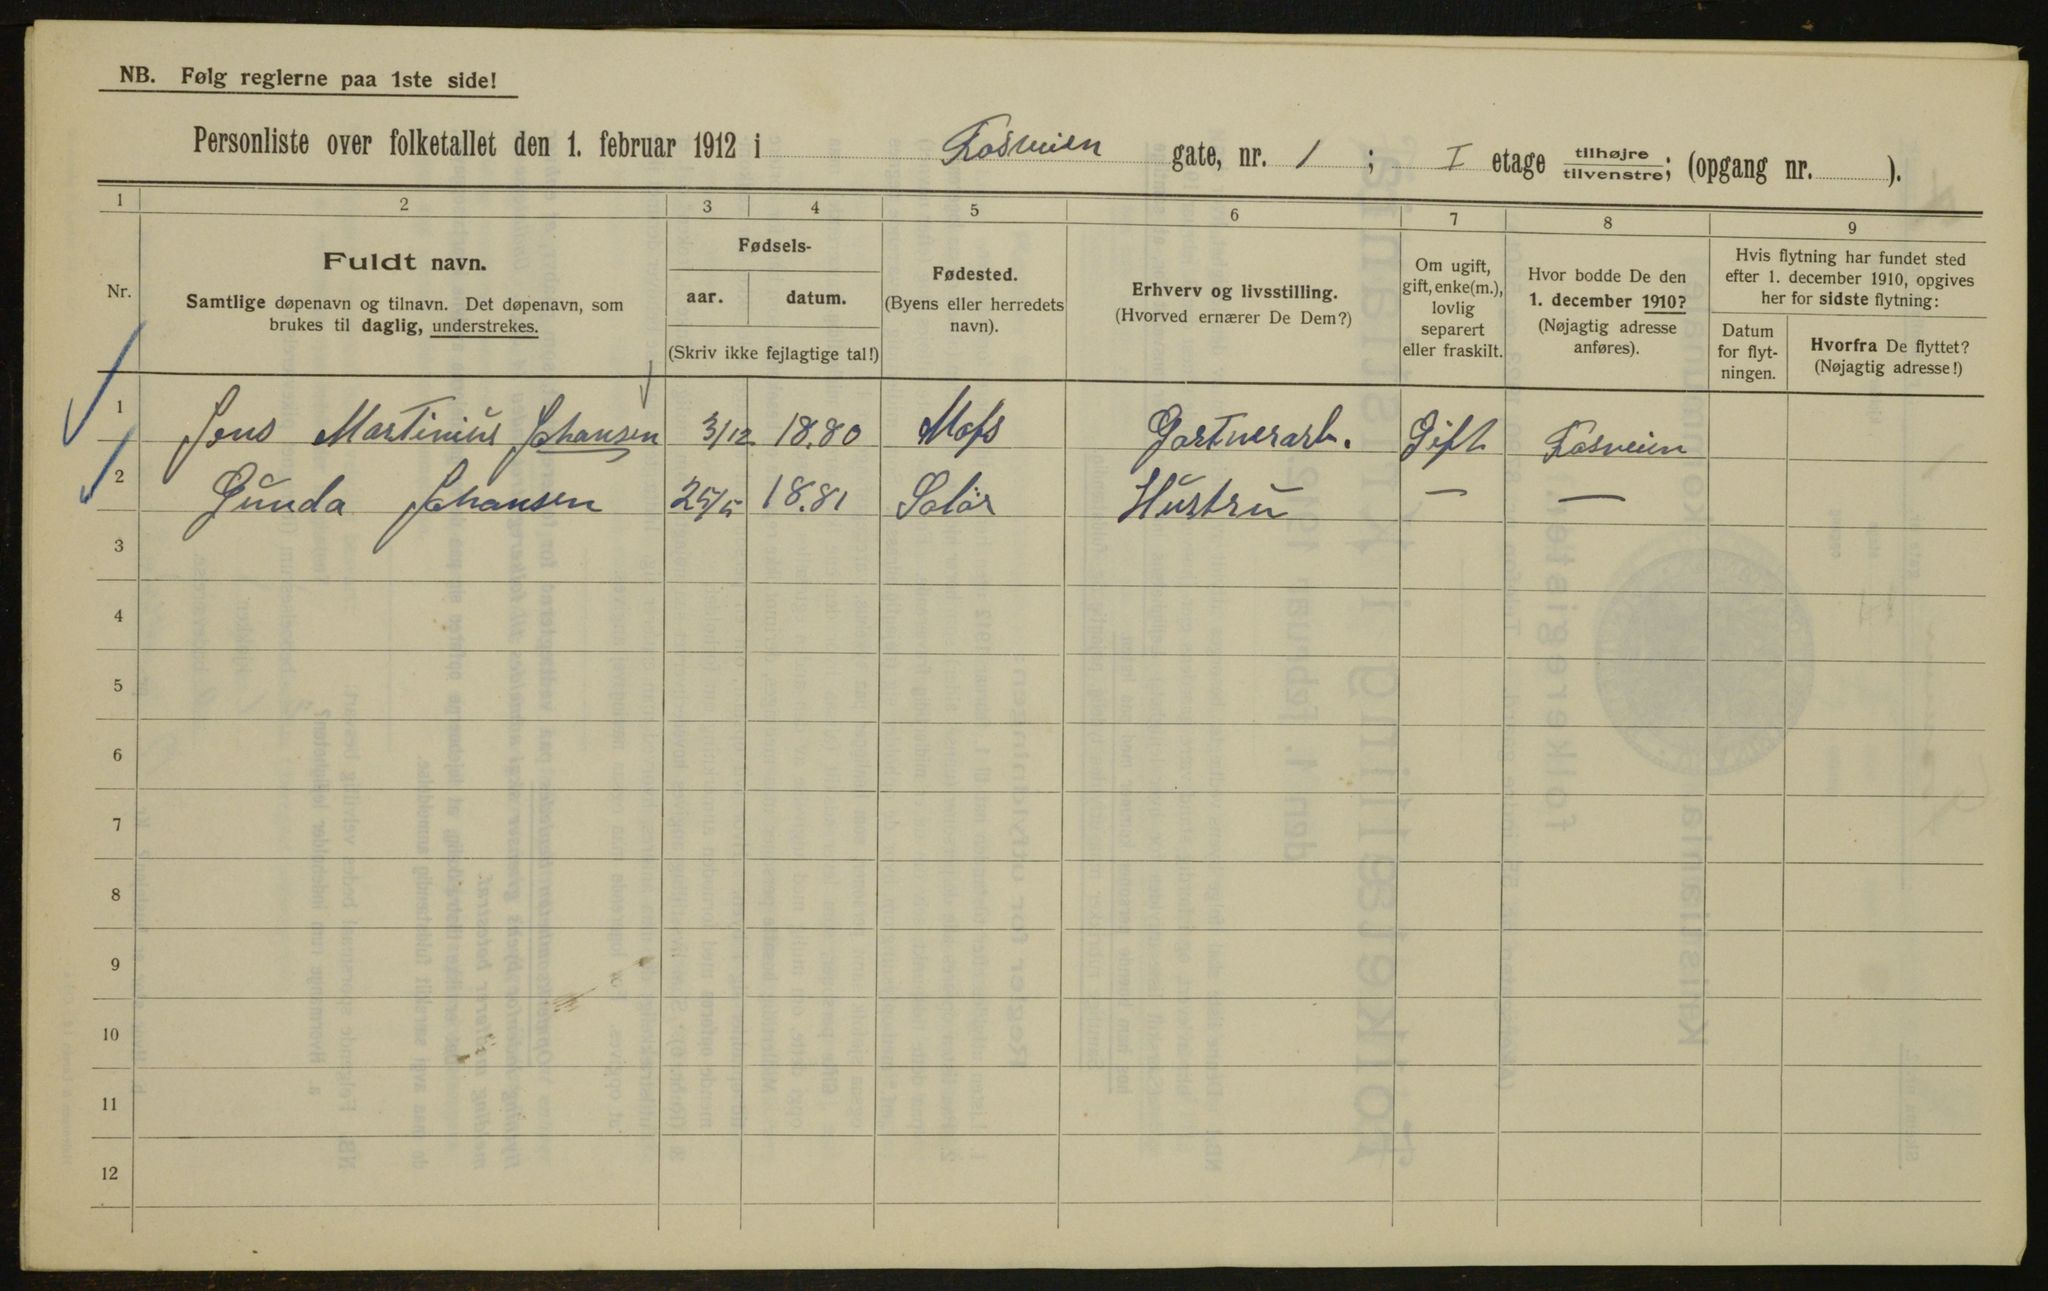 NB. Følg reglerne paa 1ste side!
Personliste over folketallet den 1. februar 1912 i Fosveien gate, nr. 1 ; I etage tilhøjre/tilvenstre; (opgang nr. ).
1 2 3 4 5 6 7 8 9
Nr.
Fuldt navn.
Samtlige døpenavn og tilnavn. Det døpenavn, som
brukes til daglig, understrekes.
Fødsels-
aar. datum.
(Skriv ikke fejlagtige tal!)
Fødested.
(Byens eller herredets
navn).
Erhverv og livsstilling.
(Hvorved ernærer De Dem?)
Om ugift,
gift, enke(m.),
lovlig
separert
eller fraskilt.
Hvor bodde De den
1. december 1910?
(Nøjagtig adresse
anføres).
Hvis flytning har fundet sted
efter 1. december 1910, opgives
her for sidste flytning:
Datum
for flyt-
ningen.
Hvorfra De flyttet?
(Nøjagtig adresse!)
1 Jens Martinius Johansen 3/12 18.80 Moss Gartnerarb. Gift Fosveien
2 Gunda Johansen 25/5 18.81 Solør Hustru — —
3
4
5
6
7
8
9
10
11
12